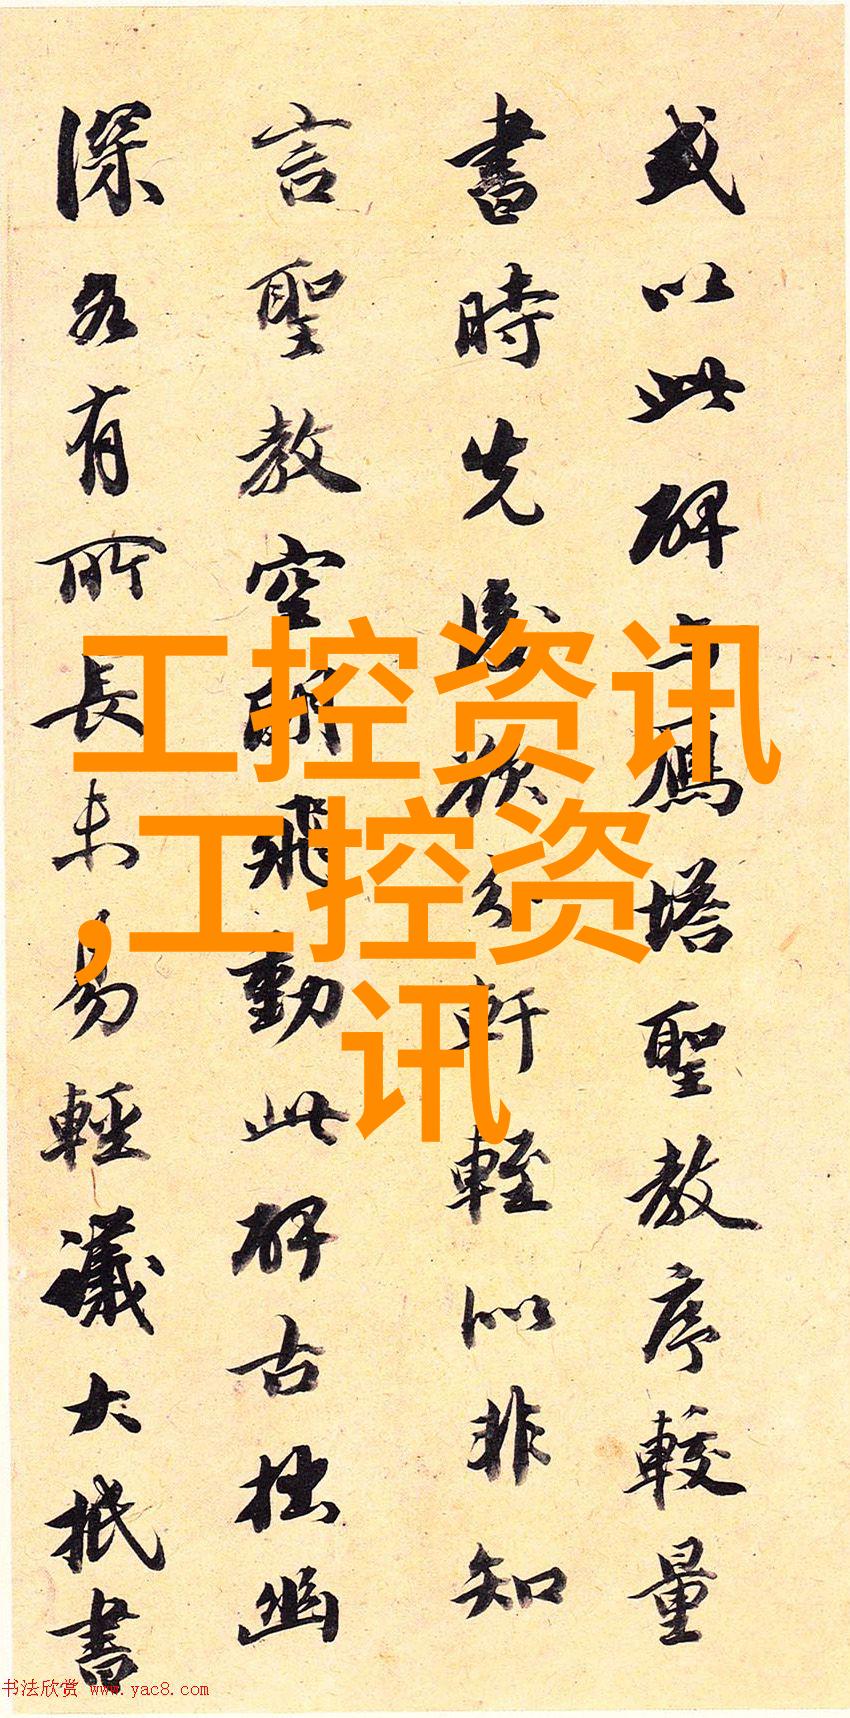 或以此碑与鴈塔聖教序較量
書時先後欲分軒輊似非知
言聖教空明飛動此碑古拙幽
深各有所長未易輕議大抵書
工控资讯
,工控资
讯
书法欣赏 www.yac8.com